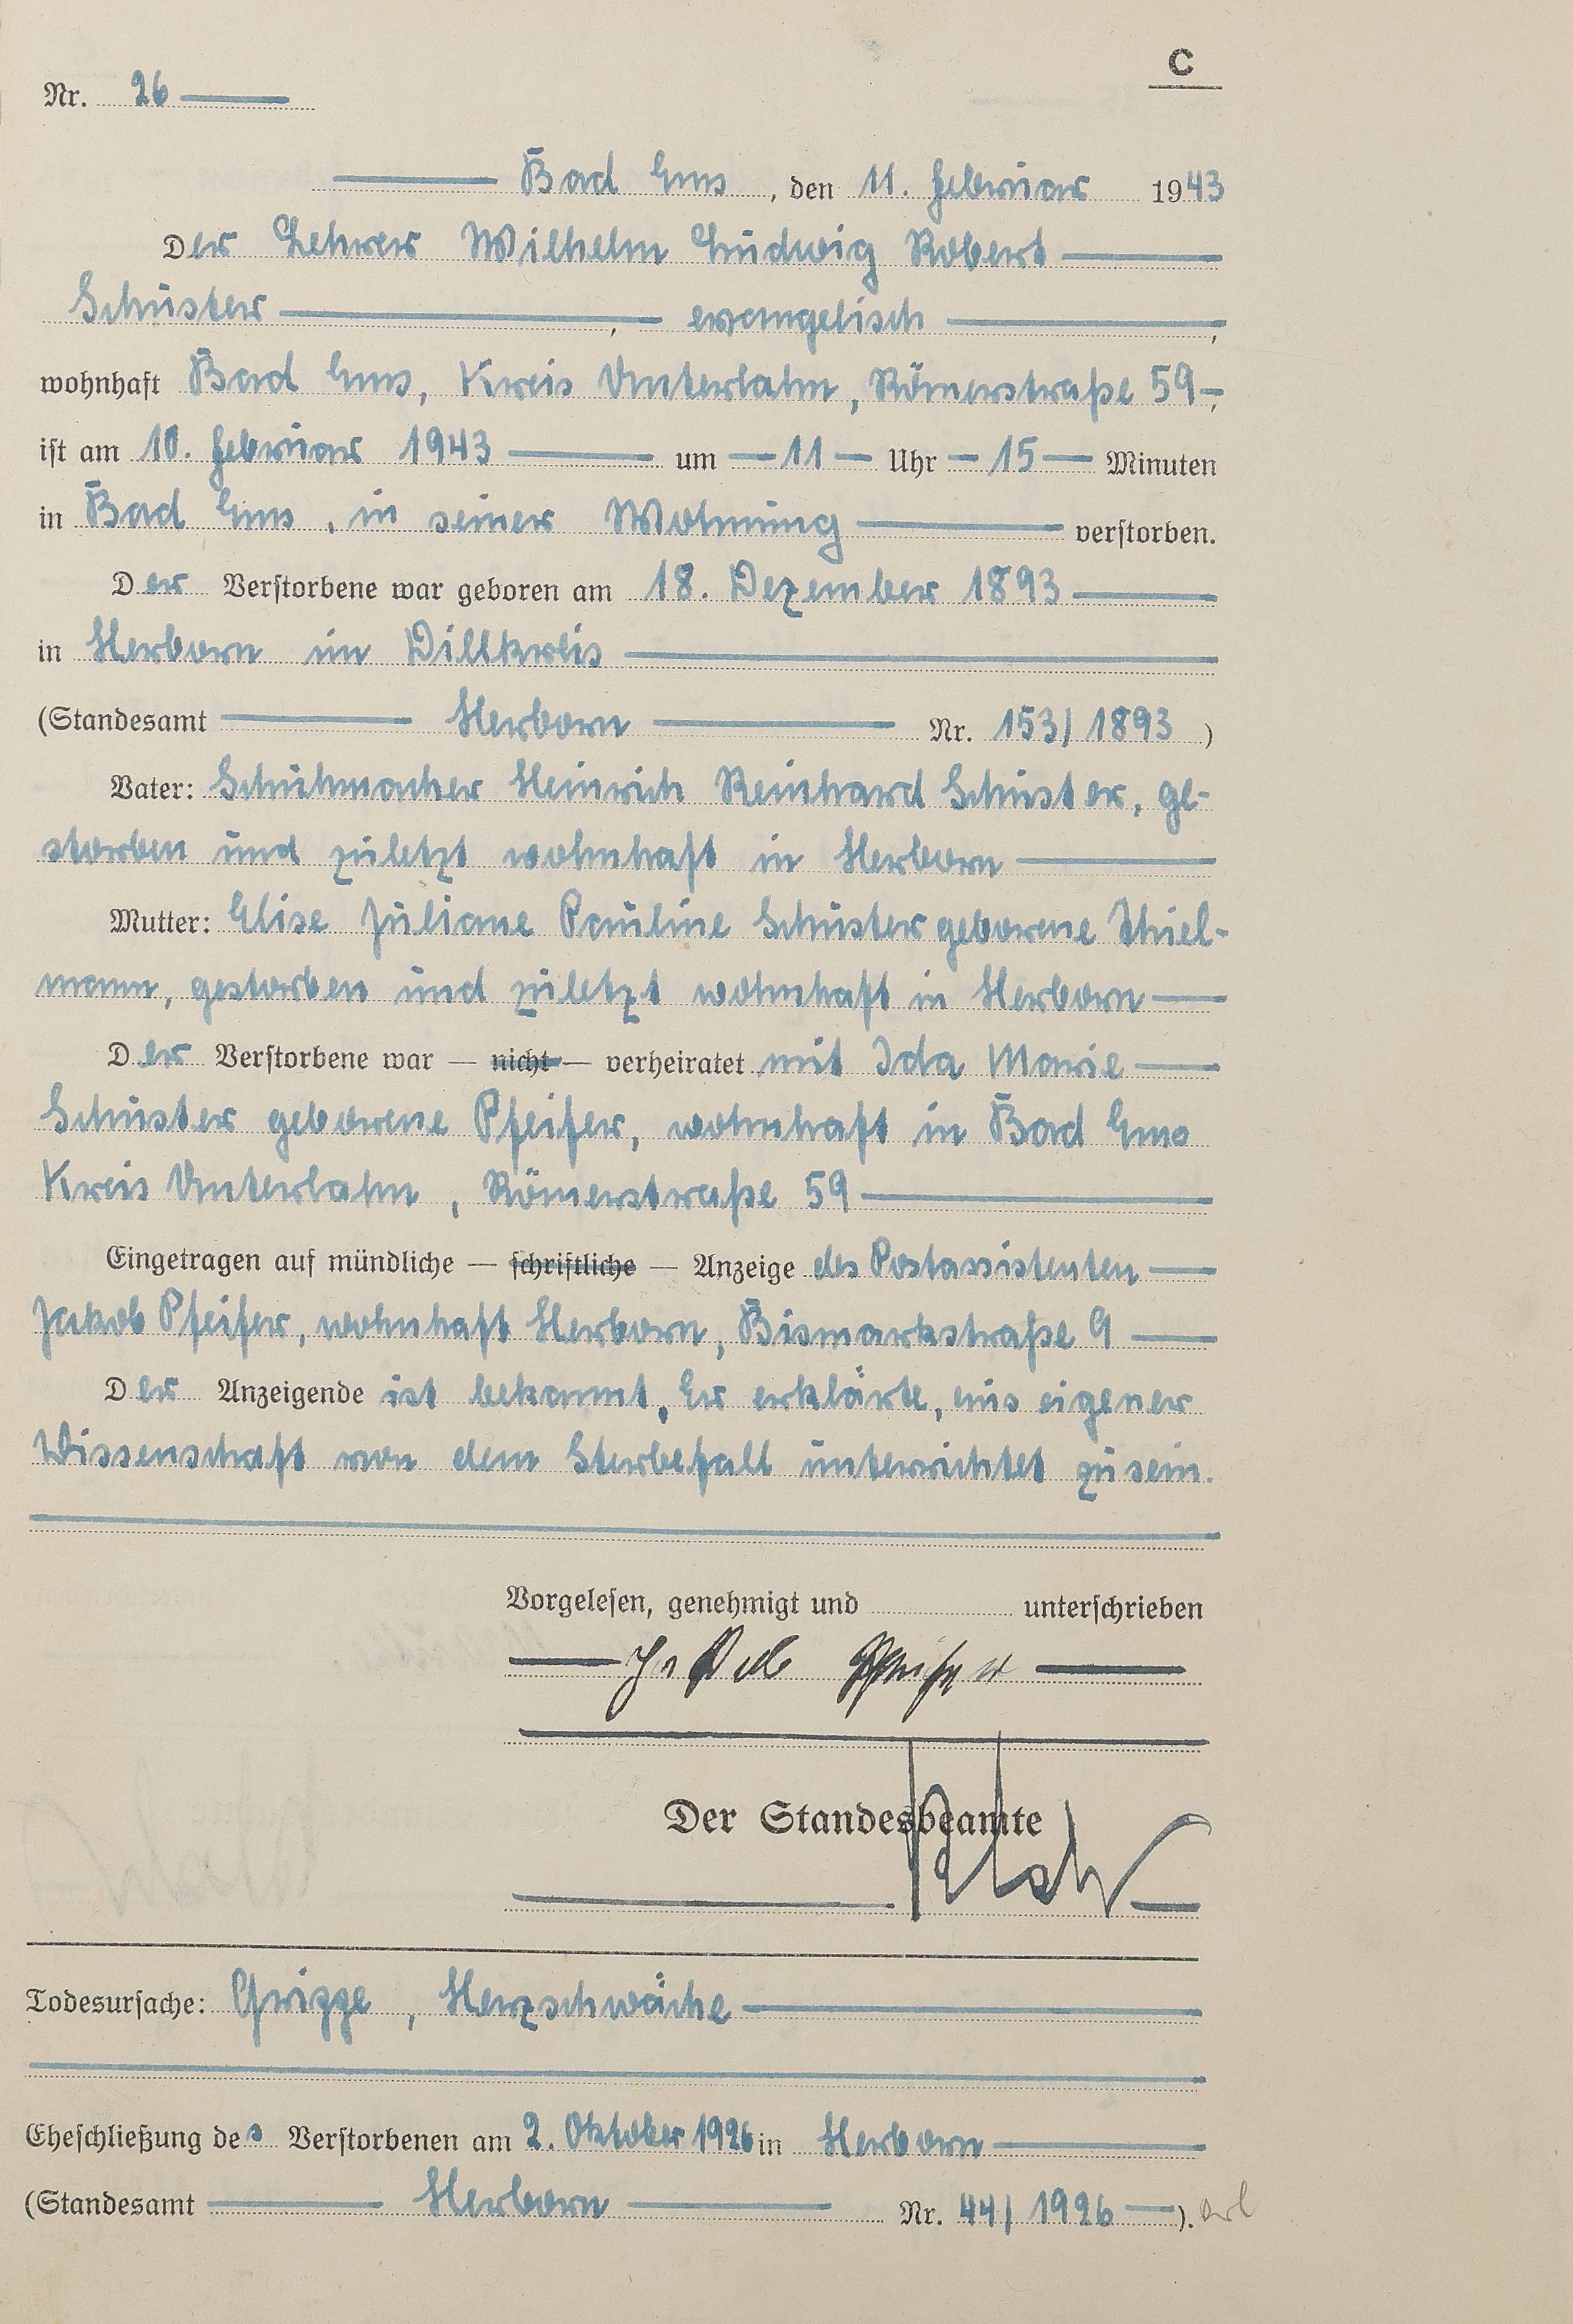 C
Nr. 26
Bad Ems, den 11. Februar 1943
Der Lehrer Wilhelm Ludwig Robert
Schuster, evangelisch,
wohnhaft Bad Ems, Kreis Unterlahn, Römerstraße 59,
ist am 10. Februar 1943 um 11 Uhr 15 Minuten
in Bad Ems, in seiner Wohnung verstorben.
Der Verstorbene war geboren am 18. Dezember 1893
in Herborn im Dillkreis
(Standesamt Herborn Nr. 153/1893)
Vater: Schuhmacher Heinrich Reinhard Schuster, ge-
storben und zuletzt wohnhaft in Herborn
Mutter: Elise Juliane Pauline Schuster geborene Thiel-
mann, gestorben und zuletzt wohnhaft in Herborn
Der Verstorbene war — nicht — verheiratet mit Ida Marie
Schuster geborene Pfeifer, wohnhaft in Bad Ems
Kreis Unterlahn, Römerstraße 59
Eingetragen auf mündliche — schriftliche — Anzeige des Postassistenten
Jakob Pfeifer, wohnhaft Herborn, Bismarkstraße 9
Der Anzeigende ist bekannt. Er erklärte, aus eigener
Wissenschaft von dem Sterbefall unterrichtet zu sein.
Vorgelesen, genehmigt und unterschrieben
Jakob Pfeifer
Der Standesbeamte
Todesursache: Grippe, Herzschwäche
Eheschließung des Verstorbenen am 2. Oktober 1926 in Herborn
(Standesamt Herborn Nr. 44/1926).